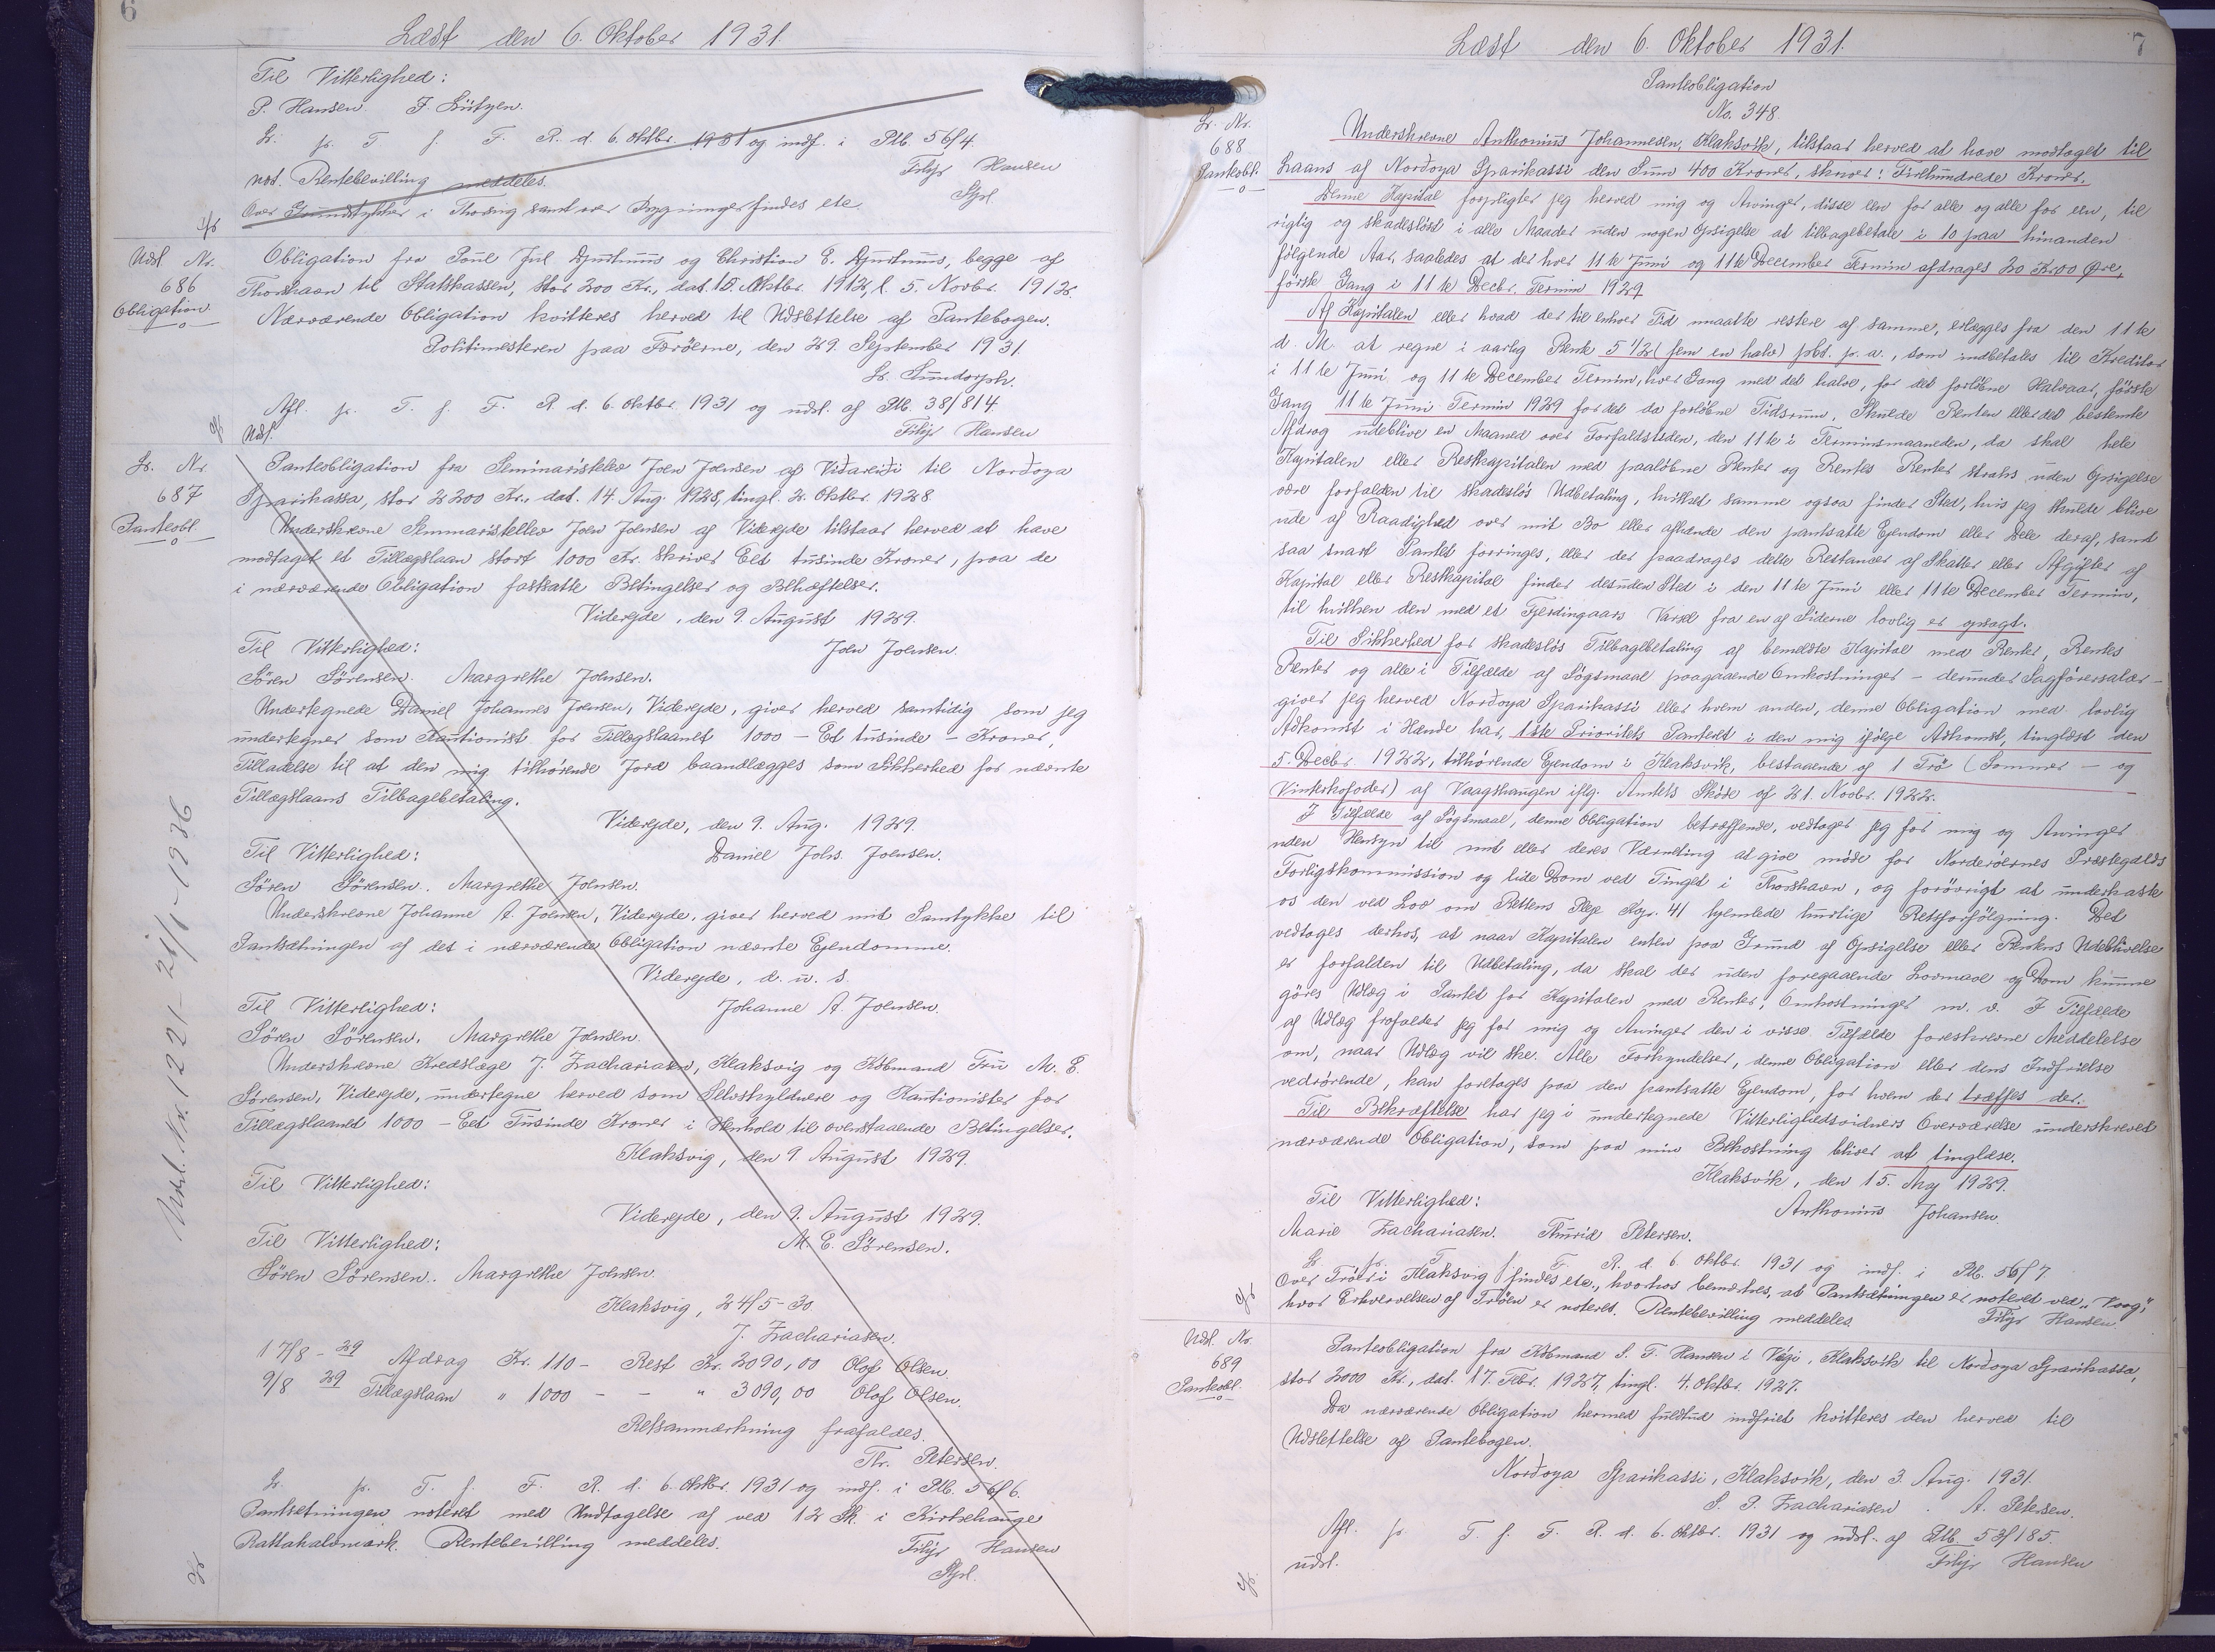 6
Læst den 6. Oktober 1931.
Til Vitterlighed:
P. Hansen. J. Lützen.
Lr. fr. T. f. F. R. d. 6. Oktbr. 1931 og indf. i Ptb. 56/4.
not. Rentebevilling meddeles. Filip Hansen
Over Grundstykker i Thorsvig samt over Bygninger findes etc.
Udsl. Nr. 686 Obligation.
Obligation fra Poul Jul Djurhuus og Christian E. Djurhuus, begge af
Thorshavn til Statskassen, stor 200 Kr., dat. 10. Oktbr. 1912, l. 5. Novbr. 1912.
Nærværende Obligation kvitteres herved til Udslettelse af Pantebogen.
Politimesteren paa Færøerne, den 29. September 1931.
Afl. fr. T. f. F. R. d. 6. Oktbr. 1931 og udsl. af Ptb. 38/814.
Udsl. Filip Hansen
Lr. Nr. 687 Panteobl.
Panteobligation fra Seminaristelev Joen Joensen af Viðareiði til Norðoya
Sparikassa, stor 2200 Kr., dat. 14. Aug. 1928, tingl. 2. Oktbr. 1928.
Underskrevne Seminaristelev Joen Joensen af Viderejde tilstaar herved at have
modtaget et Tillægslaan stort 1000 Kr. skriver Eet tusinde Kroner, paa de
i nærværende Obligation fastsatte Betingelser og Behæftelser.
Viderejde, den 9. August 1929.
Til Vitterlighed: Joen Joensen.
Sören Sörensen. Margrethe Joensen.
Undertegnede Daniel Johannes Joensen, Viderejde, giver herved samtidig som jeg
undertegner som Kautionist for Tillægslaanet 1000 – Et tusinde – Kroner,
Tilladelse til at den mig tilhørende Jord baandlægges som Sikkerhed for nævnte
Tillægslaans Tilbagebetaling.
Viderejde, den 9. Aug. 1929.
Til Vitterlighed: Daniel Johs. Joensen.
Sören Sörensen. Margrethe Joensen.
Underskrevne Johanne A. Joensen, Viderejde, giver herved mit Samtykke til
Pantsætningen af det i nærværende Obligation nævnte Ejendomme.
Viderejde, d. u. s.
Til Vitterlighed: Johanne A. Joensen.
Sören Sörensen. Margrethe Joensen.
Underskrevne Kredslæge J. Zachariasen, Klaksvig og Købmand Fru M. E.
Sørensen, Viderejde, undertegne herved som Selvskyldnere og Kautionister for
Tillægslaanet 1000 – Eet Tusinde Kroner i Henhold til ovenstaaende Betingelser.
Klaksvig, den 9. August 1929.
Til Vitterlighed:
Viderejde, den 9. August 1929.
Til Vitterlighed: M. E. Sörensen.
Sören Sörensen. Margrethe Joensen.
Klaksvig, 24/5-30.
J. Zachariasen.
17/8 - 29 Afdrag Kr. 110 – Rest Kr. 2090,00 Olaf Olsen.
9/8 29 Tillægslaan " 1000 – – " 3090,00 Olaf Olsen.
Retsanmærkning frafaldes.
Thr. Petersen.
Lr. fr. T. f. F. R. d. 6. Oktbr. 1931 og indf. i Ptb. 56/6.
Pantsetningen noteret med Undtagelse af ved 12 Sk. i Kirkehauge
Rentebevilling meddeles. Filip Hansen
Udsl. Nr. 1221 - 21/1 - 1936
7
Læst den 6. Oktober 1931.
Panteobligation
No. 348.
Lr. Nr. 688 Panteobl.
Underskrevne Anthonius Johannesen, Klaksvík, tilstaar herved at have modtaget til
Laans af Norðoya Sparikassi den Sum 400 Kroner, skriver: Firehundrede Kroner.
Denne Kapital forpligter jeg herved mig og Arvinger, disse een for alle og alle for een, til
rigtig og skadesløst i alle Maader uden nogen Opsigelse at tilbagebetale i 10 paa hinanden
følgende Aar, saaledes at der hver 11te Juni og 11te December Termin afdrages 20 Kr. 00 Øre,
første Gang i 11te Decbr. Termin 1929.
Af Kapitalen eller hvad der til enhver Tid maatte restere af samme, erlægges fra den 11te
d. M. at regne i aarlig Rente 5 1/2 (fem en halv) pCt. p. a., som indbetales til Kreditor
i 11te Juni og 11te December Termin, hver Gang med det halve, for det forløbne Halvaar, første
Gang 11te Juni Termin 1929 for det da forløbne Tidsrum. Skulde Renten eller det bestemte
Afdrag udeblive en Maaned over Forfaldstiden, den 11te i Terminsmaaneden, da skal hele
Kapitalen eller Restkapitalen med paaløbne Renter og Rentes Renter straks uden Opsigelse
være forfalden til skadesløs Udbetaling, hvilket samme ogsaa finder Sted, hvis jeg skulde blive
ude af Raadighed over mit Bo eller afhænde den pantsatte Ejendom eller Dele deraf, samt
saa snart Pantet forringes, eller der paadrages dette Restancer af Skatter eller Afgifter af
Kapital eller Restkapital finder desuden Sted i den 11te Juni eller 11te December Termin,
til hvilken den med et Fjerdingaars Varsel fra en af Siderne lovlig er opsagt.
Til Sikkerhed for skadesløs Tilbagebetaling af bemeldte Kapital med Renter, Rentes
Renter og alle i Tilfælde af Søgsmaal paagaaende Omkostninger – derunder Sagførersalær –
giver jeg herved Norðoya Sparikassi eller hvem anden, denne Obligation med lovlig
Adkomst i Hænde har, 1ste Prioritets Panteret i den mig ifølge Adkomst, tinglæst den
5. Decbr. 1922, tilhørende Ejendom i Klaksvík, bestaaende af 1 Trö (Sommer – og
Vinterkofoder) af Vaagshaugen iflg. Amtets Skøde af 21. Novbr. 1922.
I Tilfælde af Søgsmaal, denne Obligation betræffende, vedtager jeg for mig og Arvinger
uden Hensyn til mit eller deres Værneting at give møde for Norderøernes Præstegælds
Forligskommission og lide Dom ved Tinget i Thorshavn, og forövrigt at underkaste
os den ved Lov om Rettens Pleje Kap. 41 hjemlede hurtige Retsforfølgning. Det
vedtages derhos, at naar Kapitalen enten paa Grund af Opsigelse eller Rentens Udeblivelse
er forfalden til Udbetaling, da skal der uden foregaaende Lovmaal og Dom kunne
göres Udlæg i Pantet for Kapitalen med Renter, Omkostninger m. v. I Tilfælde
af Udlæg frafalder jeg for mig og Arvinger den i visse Tilfælde foreskrevne Meddelelse
om, naar Udlæg vil ske. Alle Forkyndelser, denne Obligation eller dens Indfrielse
vedrörende, kan foretages paa den pantsatte Ejendom, for hvem der træffes der.
Til Bekræftelse har jeg i undertegnede Vitterlighedsvidners Overværelse underskrevet
nærværende Obligation, som paa min Bekostning bliver at tinglæse.
Klaksvík, den 15. Maj 1929.
Til Vitterlighed: Anthonius Johansen.
Marie Zachariasen. Thurid Petersen.
Lr. fr. T. f. F. R. d. 6. Oktbr. 1931 og indf. i Ptb. 56/7
Over Tröer i Klaksvig findes etc., hvorhos bemærkes, at Pantsætningen er noteret ved „Vaag",
hvor Erhvervelsen af Tröen er noteret. Rentebevilling meddeles. Filip Hansen.
Udsl. Nr. 689 Panteobl.
Panteobligation fra Købmand S. T. Hansen i Vági, Klaksvík til Norðoya Sparikassa,
stor 2000 Kr., dat. 17. Febr. 1927, tingl. 4. Oktbr. 1927.
Da nærværende Obligation hermed fuldtud indfriet kvitteres den herved til
Udslettelse af Pantebogen.
Norðoya Sparikassi, Klaksvík, den 3. Aug. 1931.
S. P. Zachariasen. A. Petersen.
Afl. fr. T. f. F. R. d. 6. Oktbr. 1931 og udsl. af Ptb. 53/185.
udsl. Filip Hansen